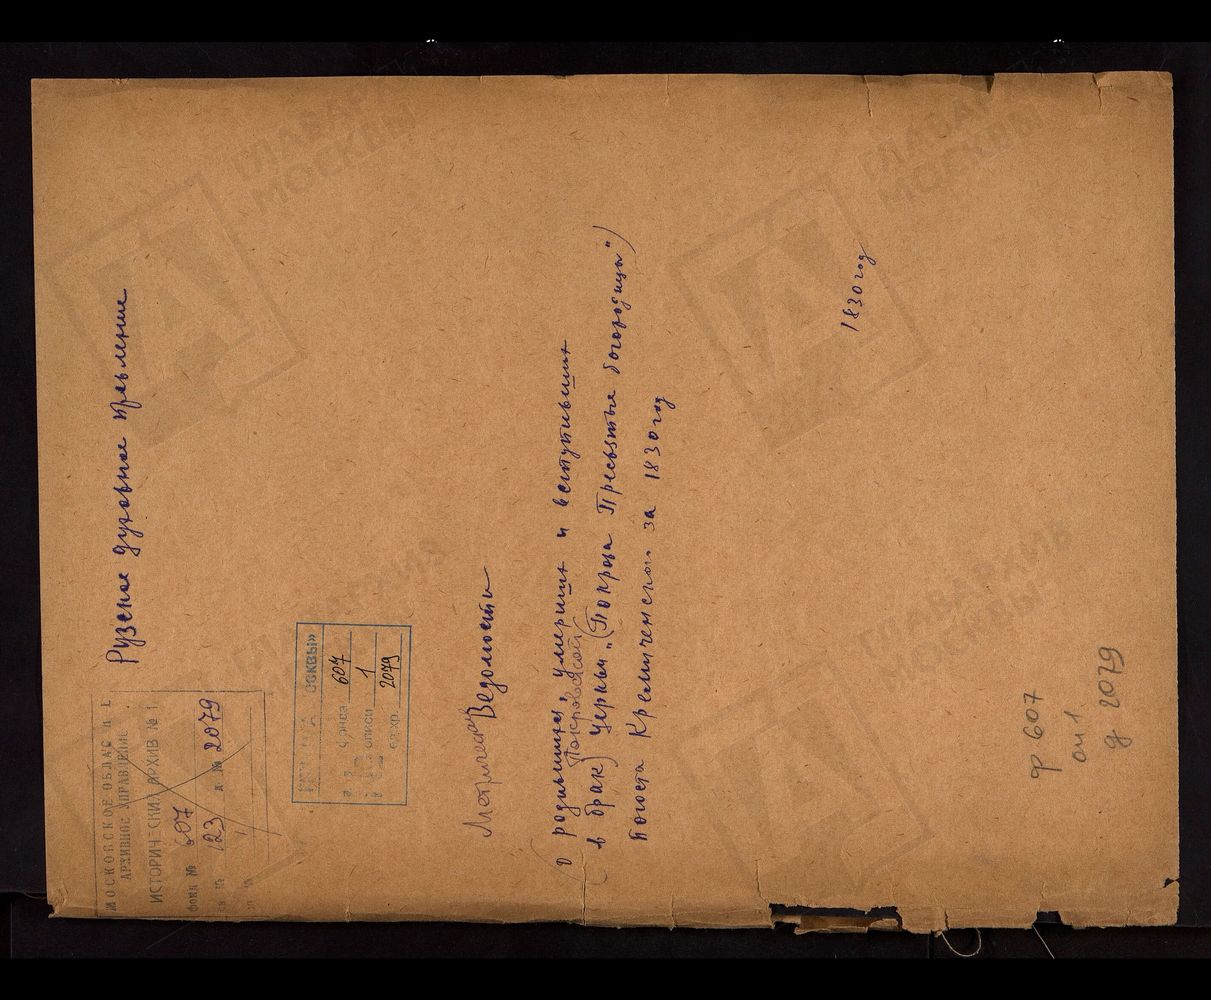 Рузское духовное правление
МОСКОВСКОЕ ОБЛАС
АРХИВНОЕ УПРАВЛЕНИЕ
ИСТОРИЧЕСКИЙ АРХИВ № 1
ФОНД № 607
№ 23
д № 2079
МОСКВЫ»
Фонд 607
описи 1
ед.хр. 2079
Метрические Ведомости
о родившихся, умерших и вступивших
Покровской
в брак) церкви „(Покрова Пресвятые богородицы")
погоста Кремиченской за 1830 год
1830 год
ф 607
оп 1
д 2079
ГЛАВАРХИВ
МОСКВЫ